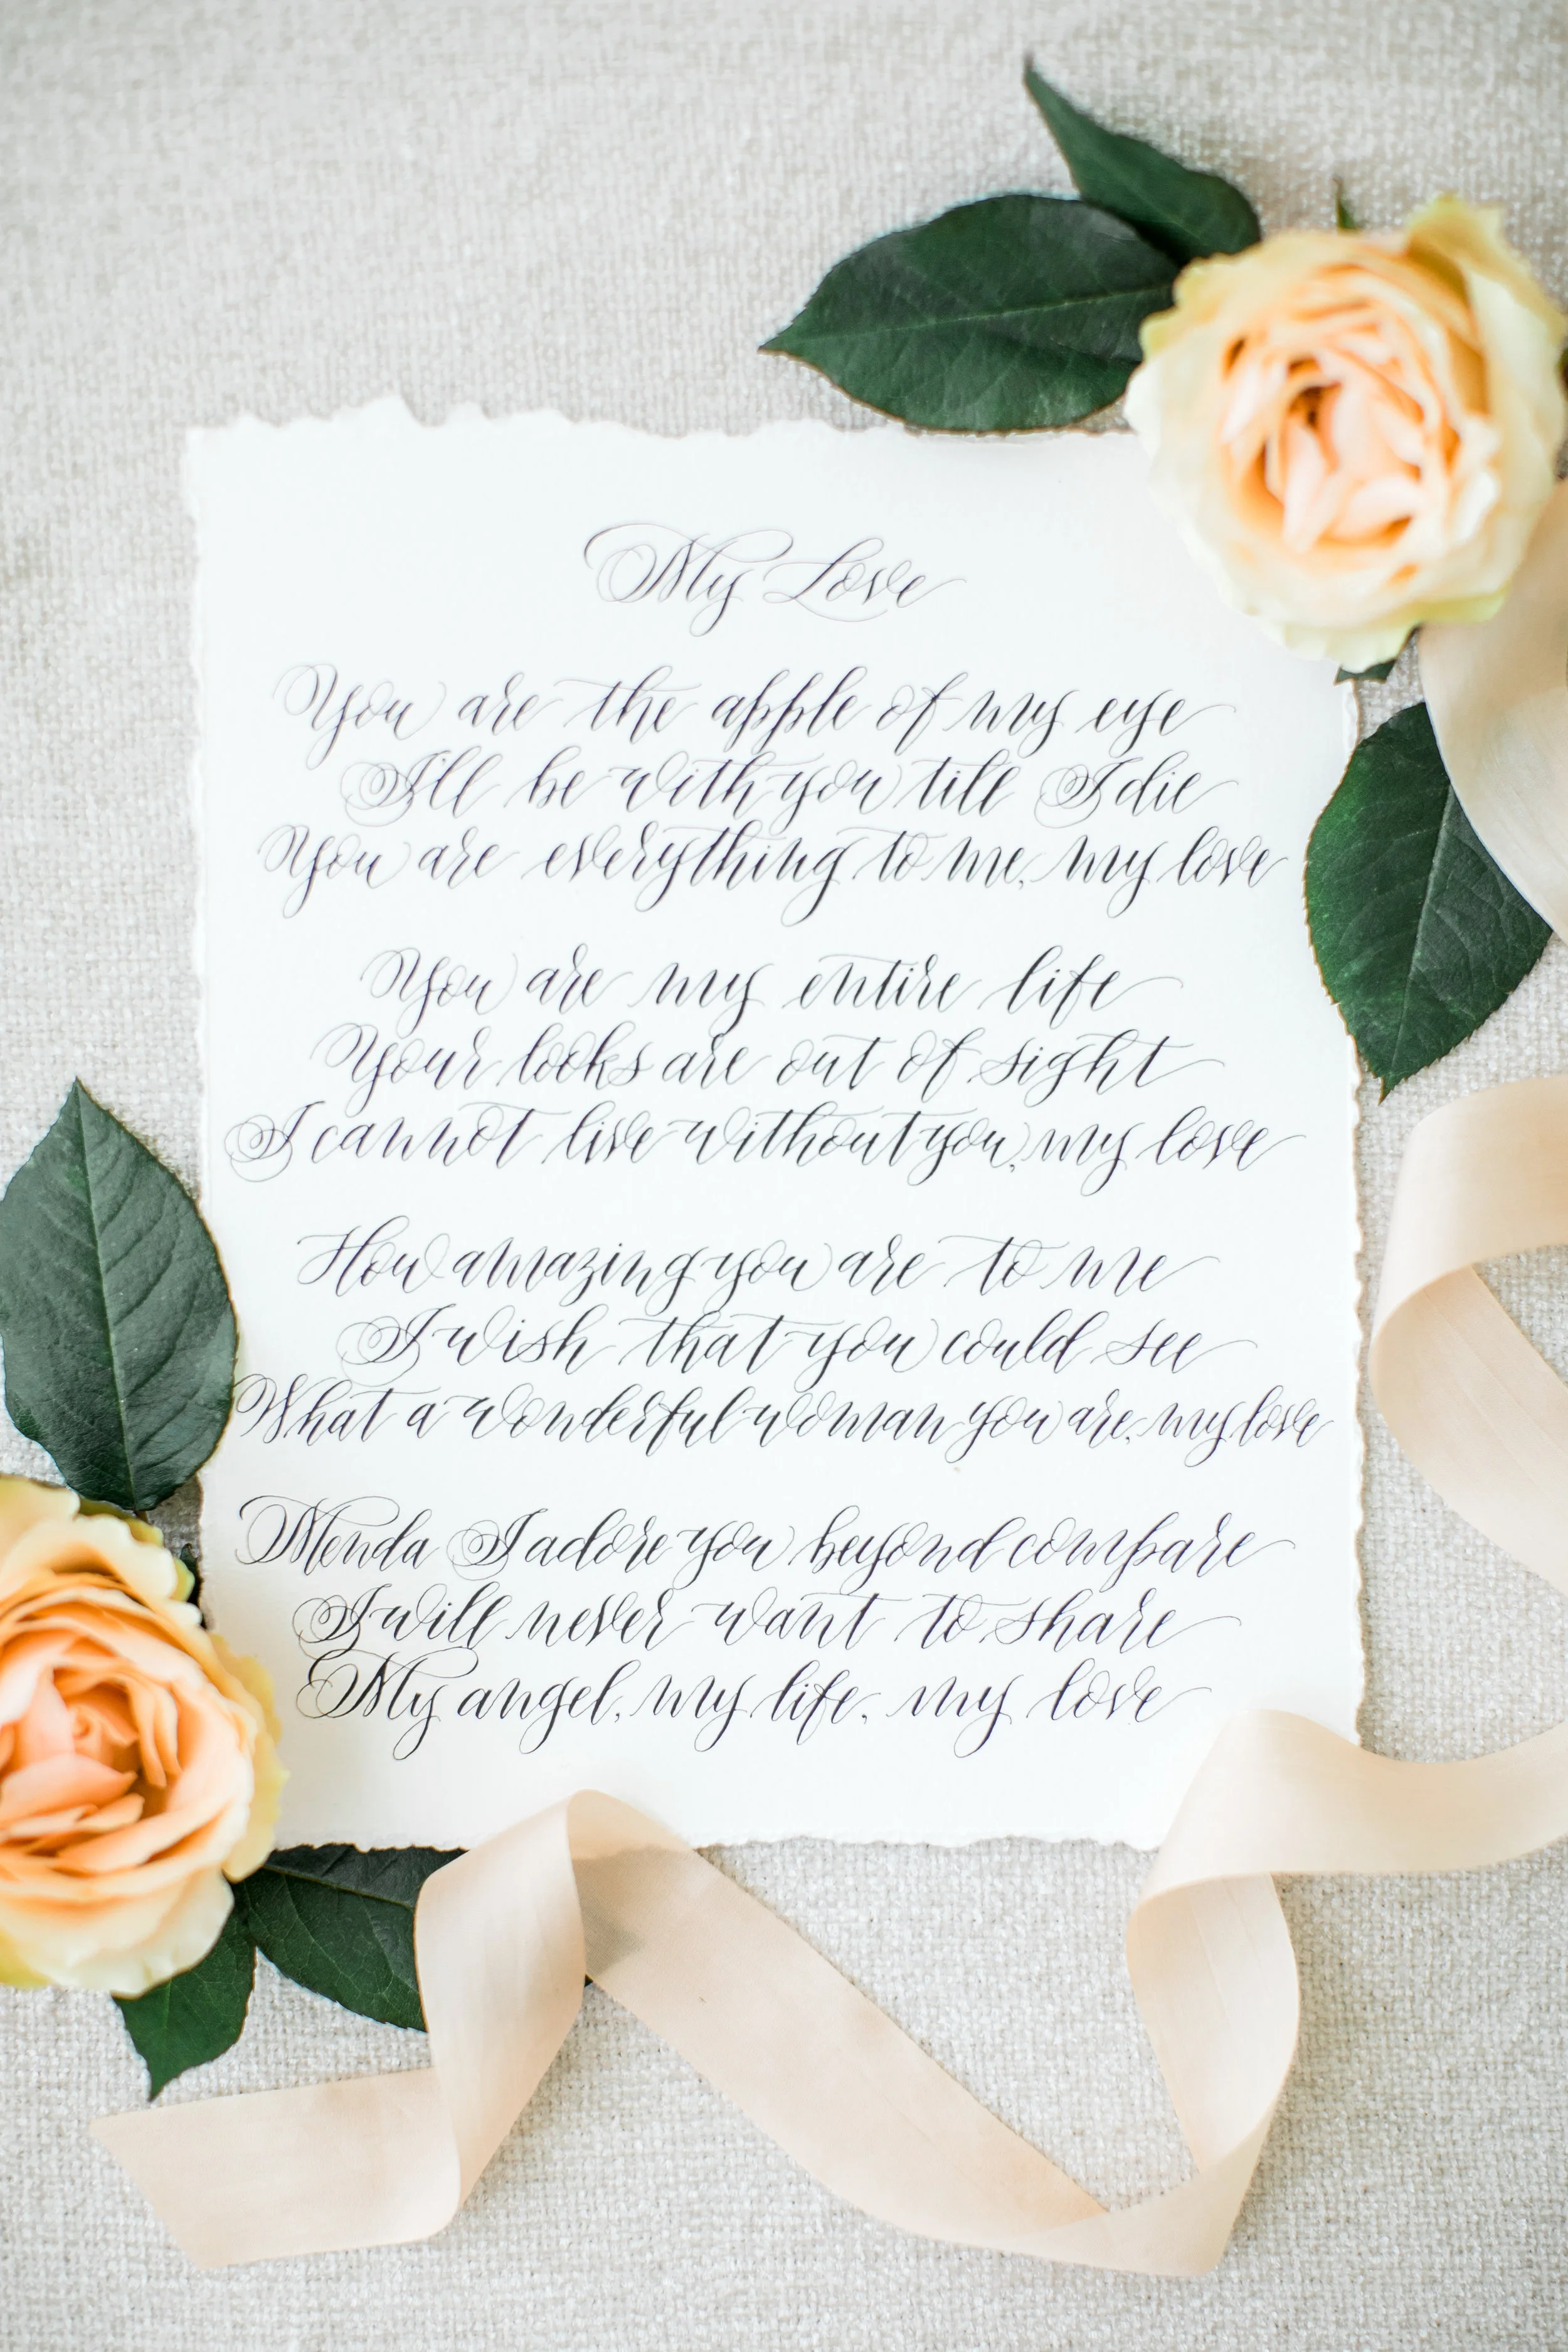 My Love
You are the apple of my eye
I'll be with you till I die
You are everything to me, my love
You are my entire life
Your looks are out of sight
I cannot live without you, my love
How amazing you are to me
I wish that you could see
What a wonderful woman you are, my love
Menda I adore you beyond compare
I will never want to share
My angel, my life, my love